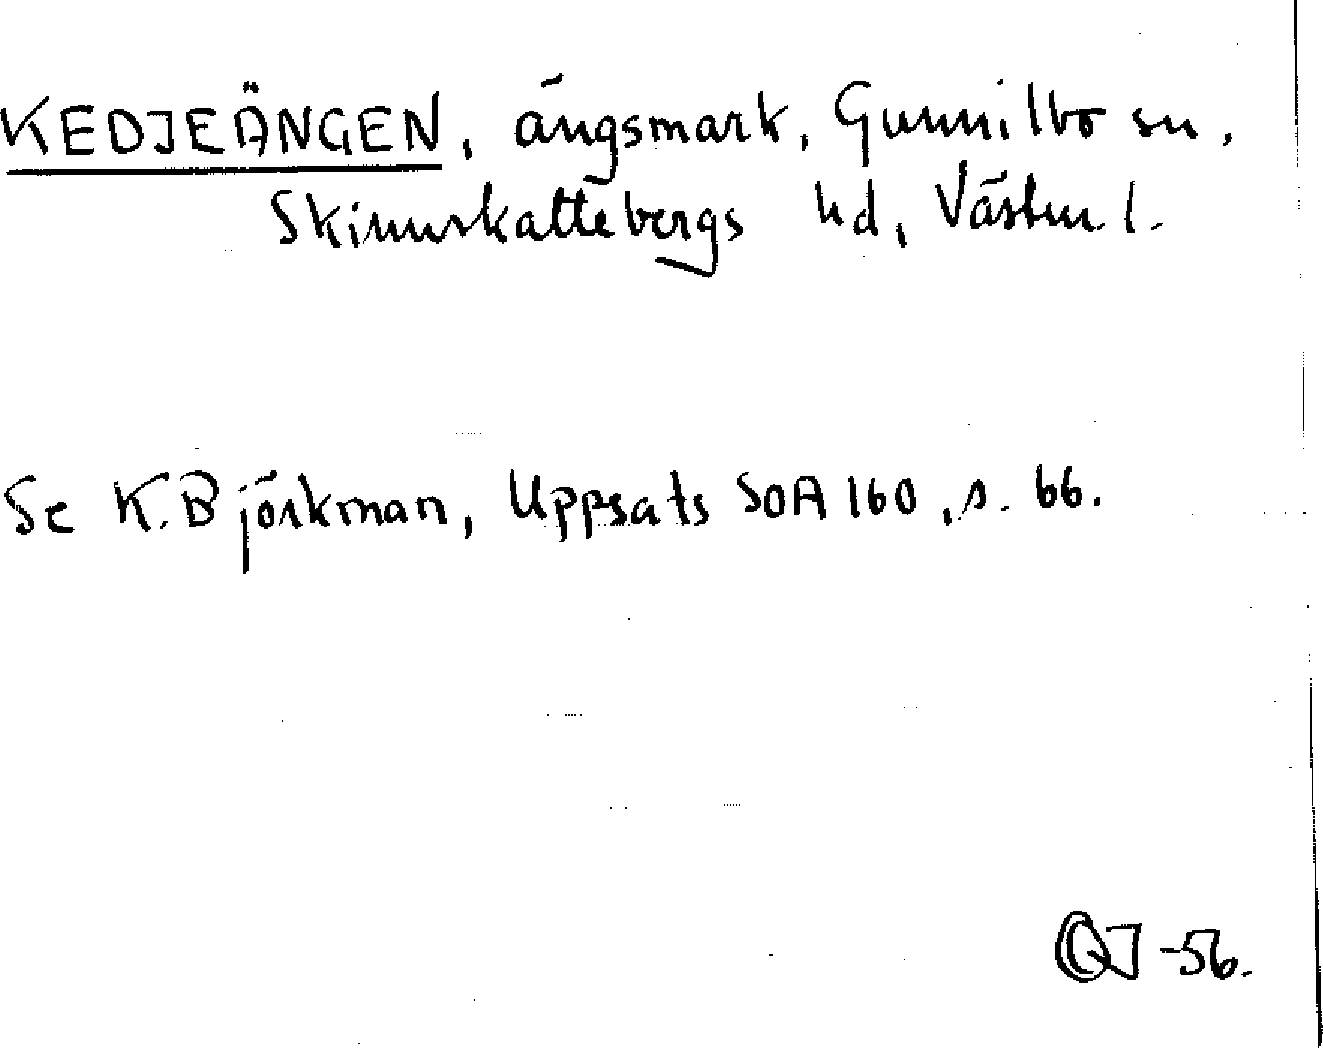 KEDJEÄNGEN, ängsmark, Gunnilbo sn,
Skinnskattebergs hd, Västm. l.
Se K. Björkman, Uppsats SOA 160, s. 66.
QJ -56.